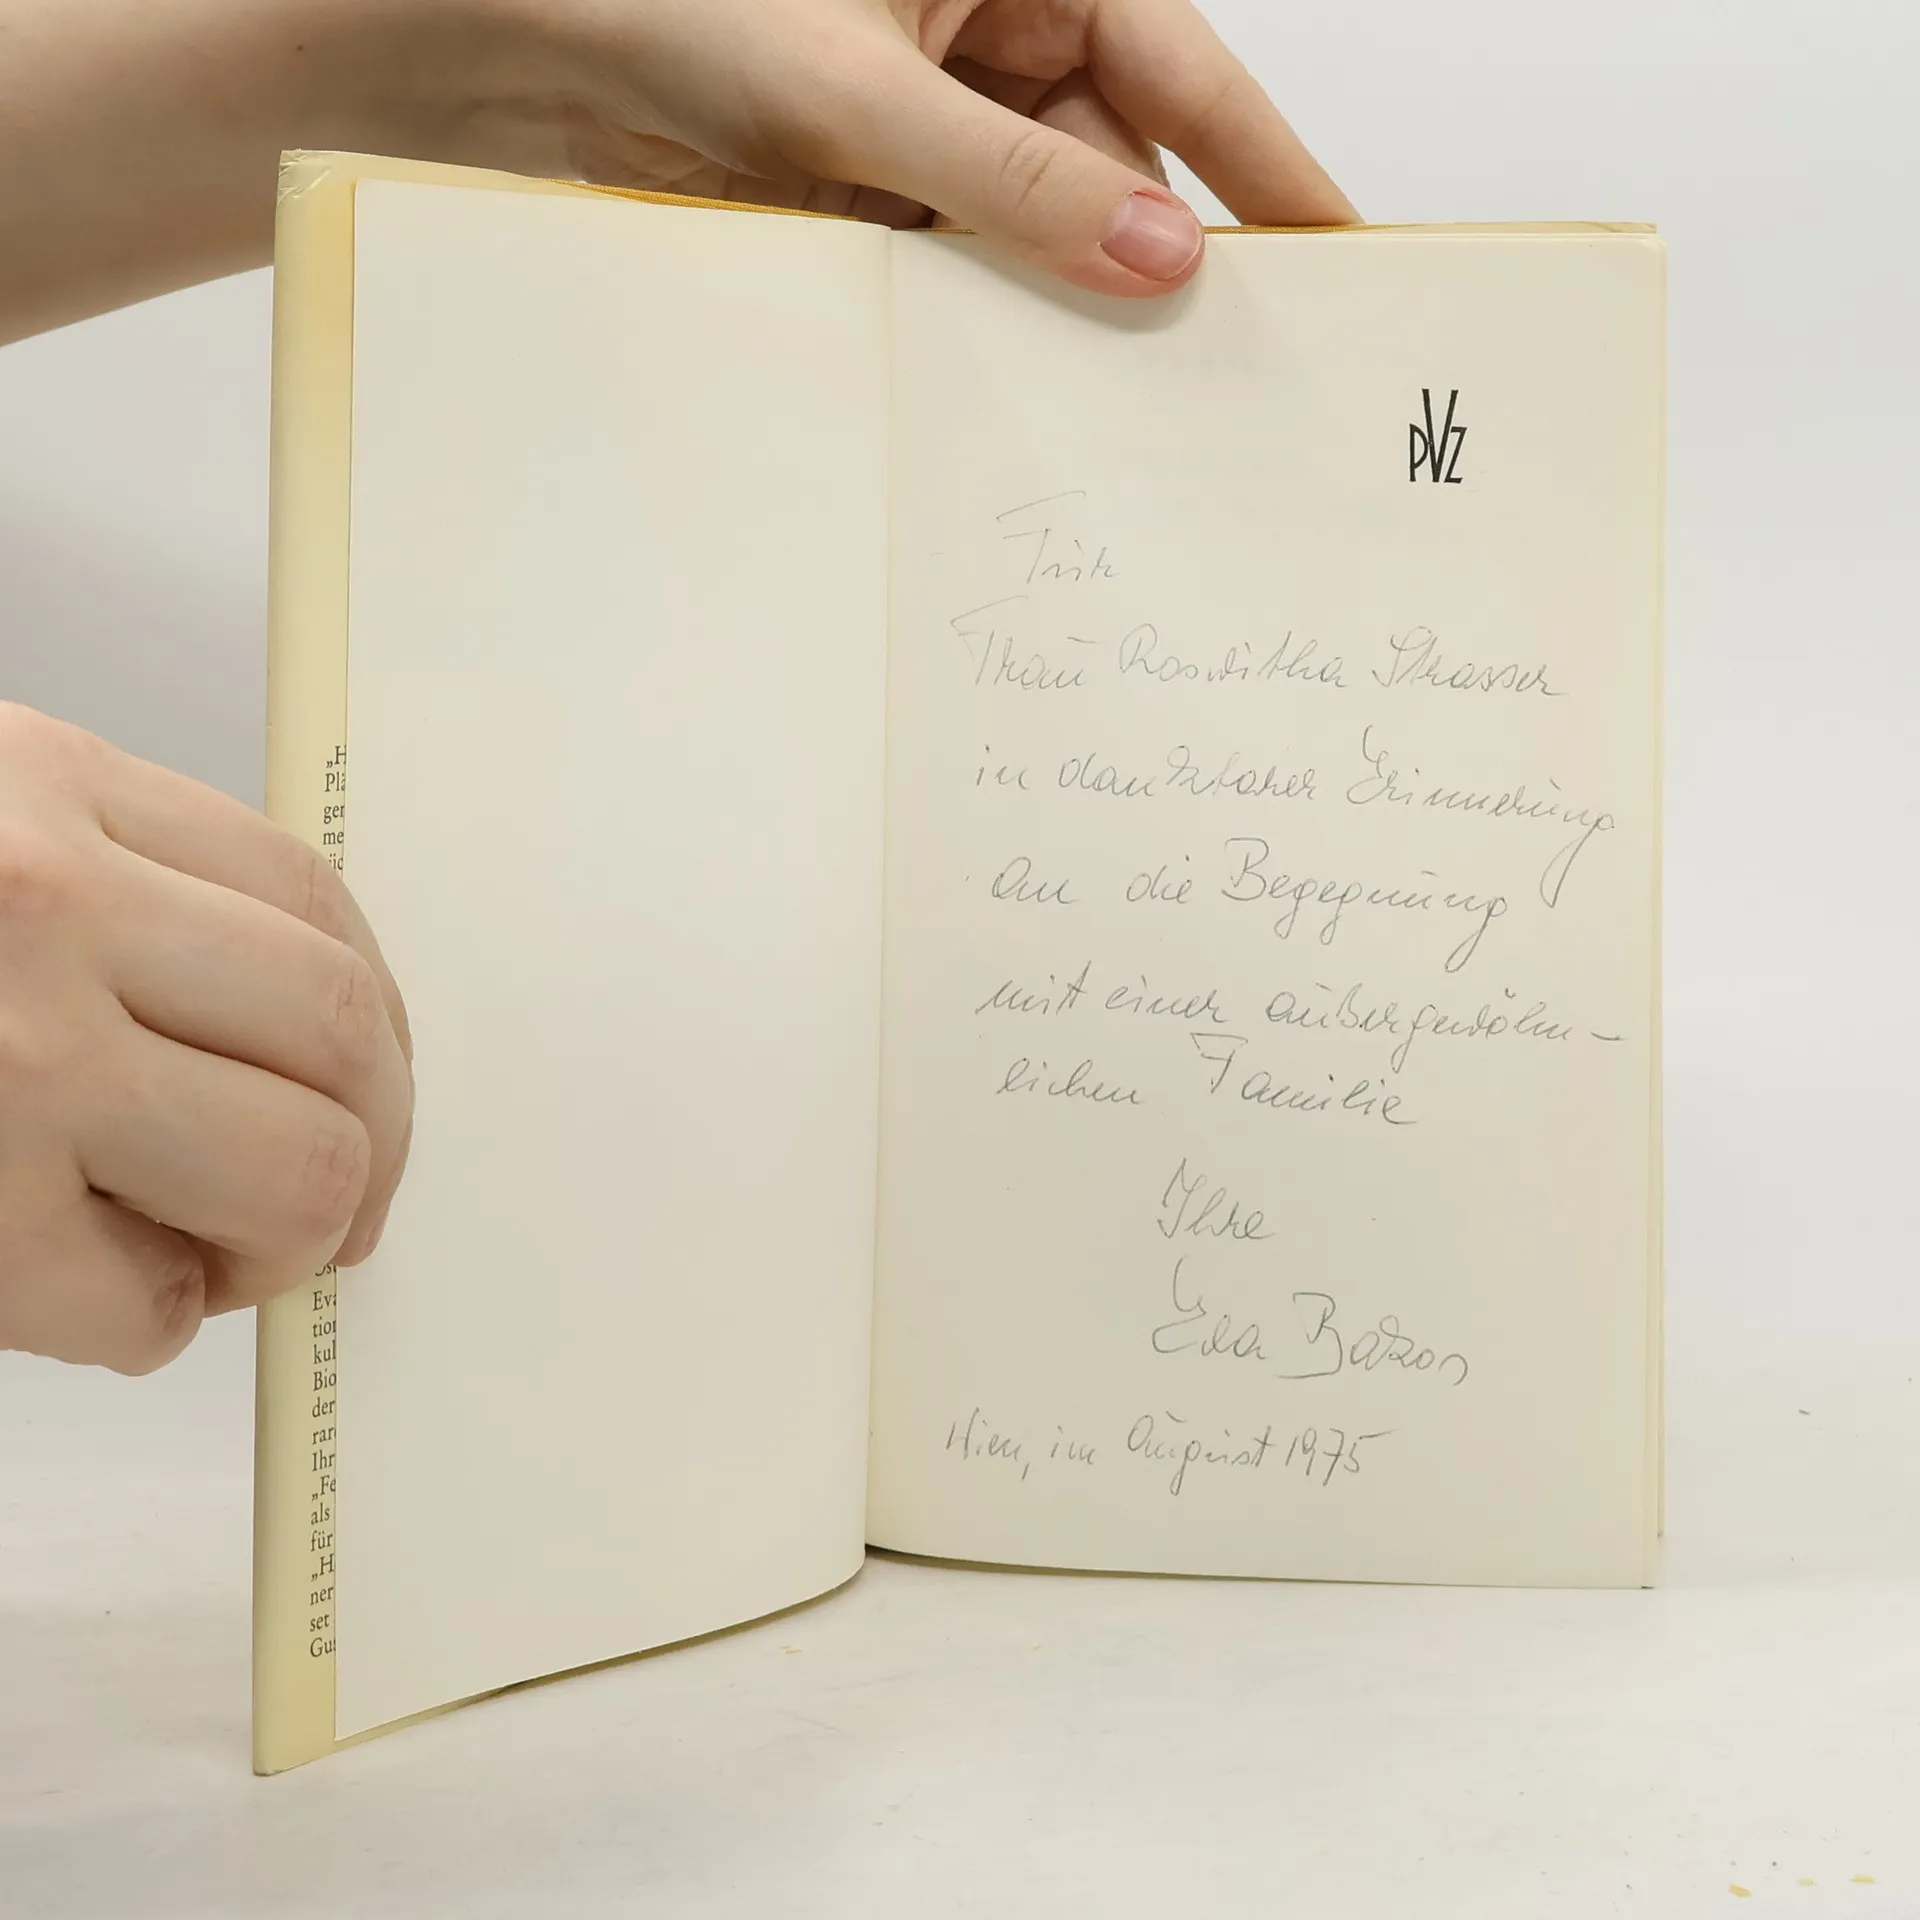 „H
Plä
ger
me
Evа
tion
kul
Bio
der
rar
Ihr
„Fe
als
für
„H
ner
set
Gus
PVZ
Für
Frau Roswitha Strasser
in dankbarer Erinnerung
an die Begegnung
mit einer außergewöhn-
lichen Familie
Ihre
Eva Bakos
Wien, im August 1975